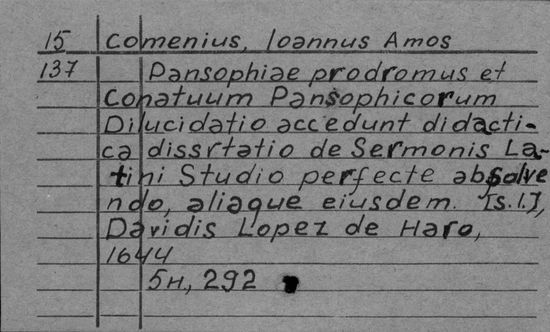 15 Comenius, Ioannus Amos
137 Pansophiae prodromus et
Conatuum Pansophicorum
Dilucidatio accedunt didacti-
ca dissrtatio de Sermonis La-
tini Studio perfecte absolve
ndo, aliaque eiusdem. [s.l.],
Davidis Lopez de Haro,
1644
5H, 292